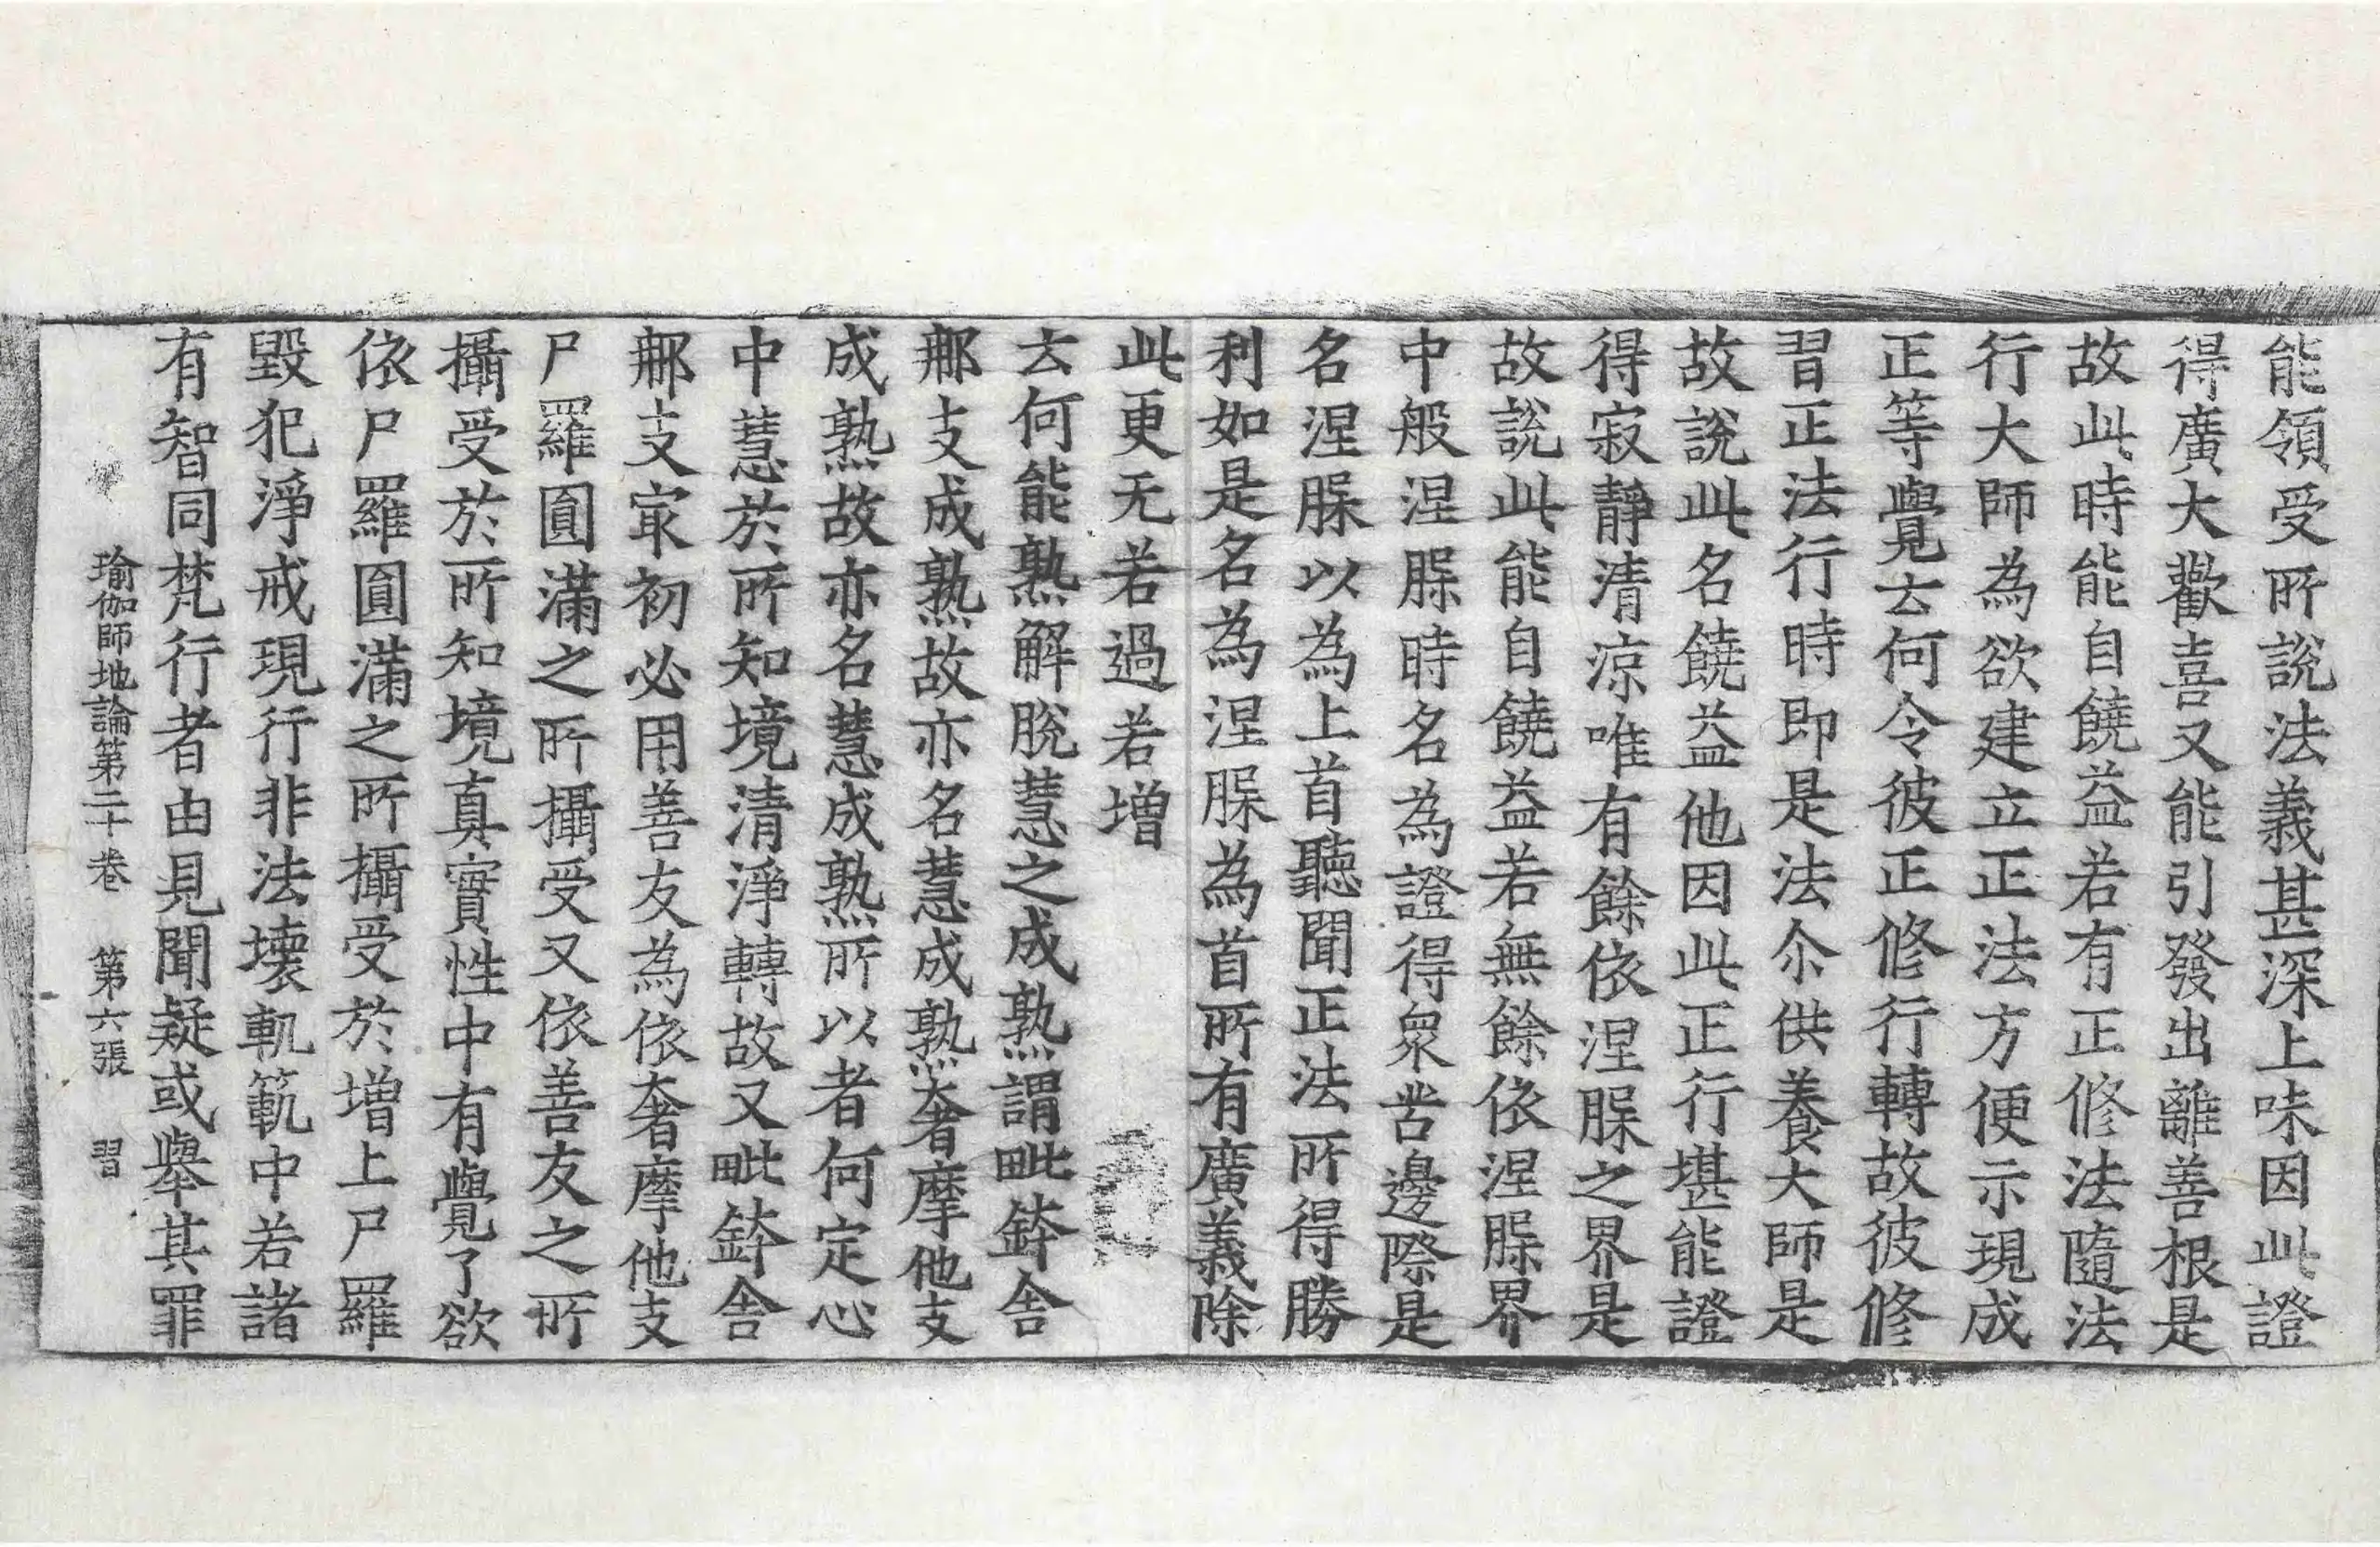 能領受所説法義甚深上味因此證
得廣大歡喜又能引發出離善根是
故此時能自饒益若有正修法隨法
行大師為欲建立正法方便示現成
正等覺云何令彼正修行轉故彼修
習正法行時即是法尒供養大師是
故說此名饒益他因此正行堪能證
得寂靜清涼唯有餘依涅槃之界是
故説此能自饒益若無餘依涅槃界
中般涅槃時名為證得衆苦邊際是
名涅槃以為上首聽聞正法所得勝
利如是名為涅槃為首所有廣義除
此更无若過若增
云何能熟解脫慧之成熟謂毗鉢舍
那支成熟故亦名慧成熟奢摩他支
成熟故亦名慧成熟所以者何定心
中慧於所知境清淨轉故又毗鉢舍
那支㝡初必用善友為依奢摩他支
尸羅圓滿之所攝受又依善友之所
攝受於所知境真實性中有覺了欲
依尸羅圓滿之所攝受於增上尸羅
毀犯淨戒現行非法壞軌範中若諸
有智同梵行者由見聞疑或舉其罪
瑜伽師地論第二十卷 第六張 習